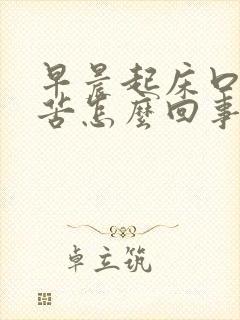 早晨起床口
苦怎麽回事
卓立筑